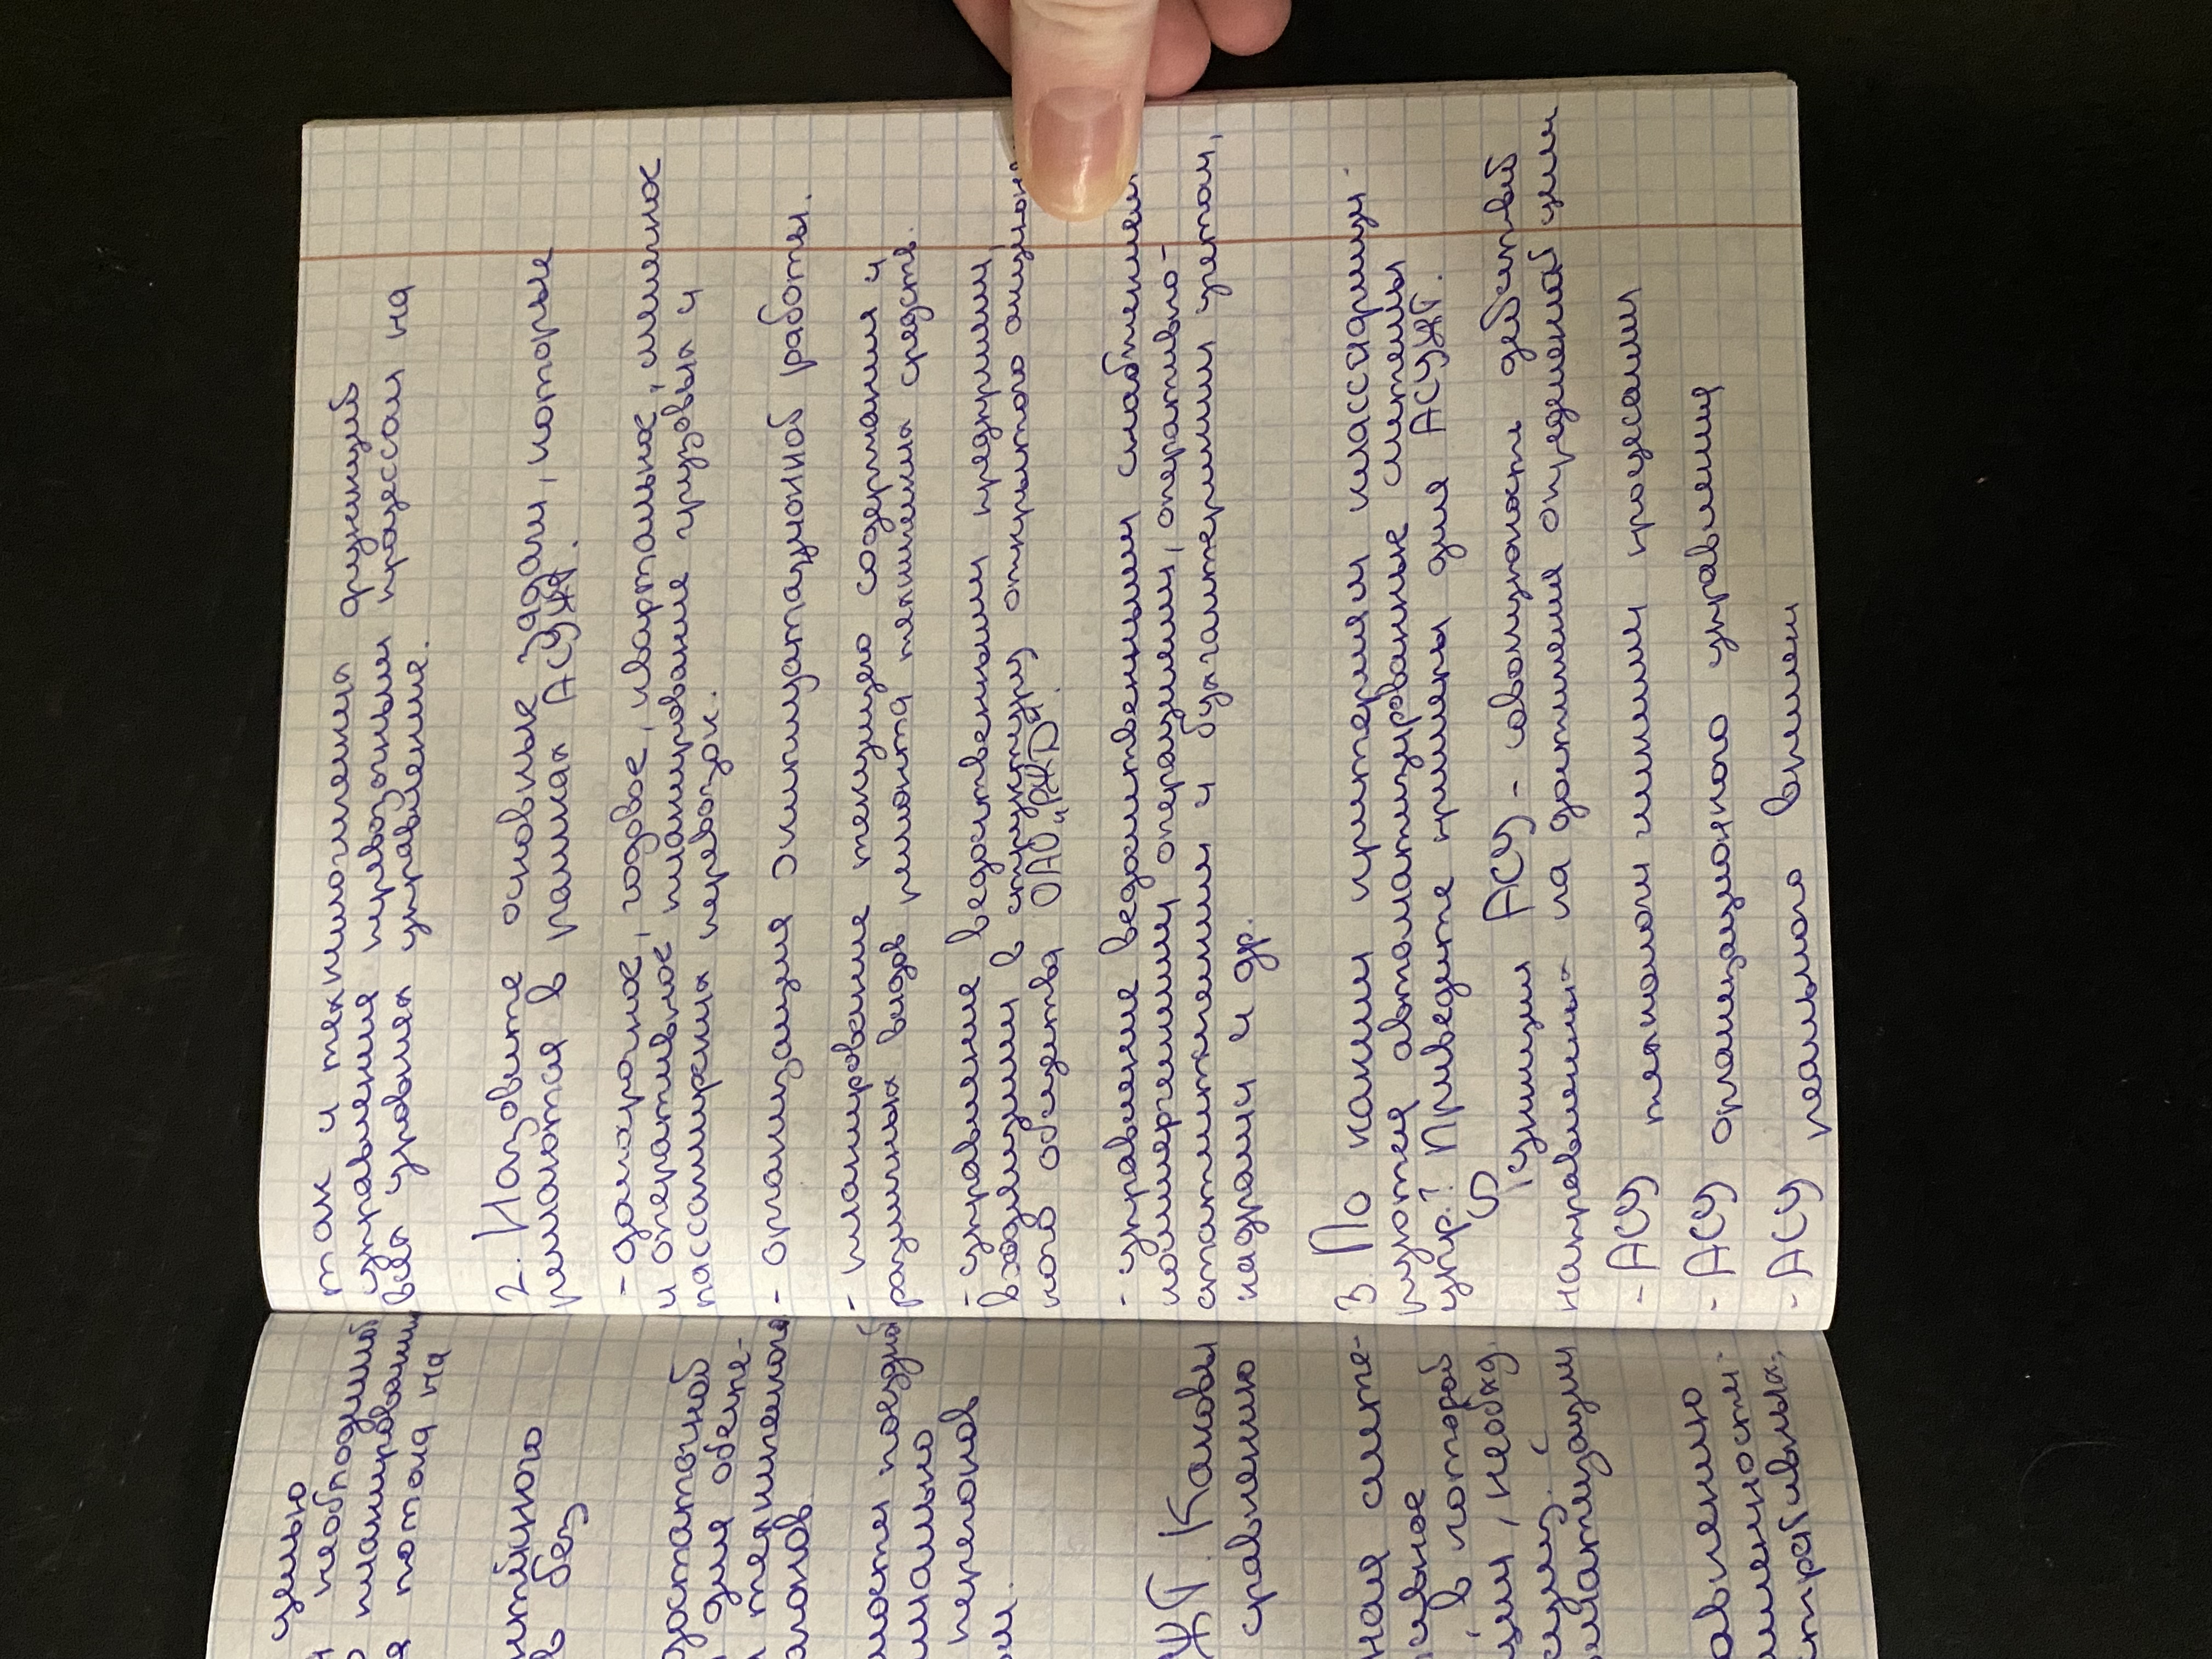 так и технологических функций
управления перевозочным процессом на
всех уровнях управление.
2. Назовите основные задачи, которые
решаются в рамках АСУЖТ.
- долгосрочное, годовое, квартальное, месячное
и оперативное планирование грузовых и
пассажирских перевозок.
- организация эксплуатационной работы.
- планирование текущего содержания и
различных видов ремонта технических средств.
- управление ведомственными предприятиями,
входящими в структуру открытого акционер
ного общества ОАО "РЖД".
- управление ведомственным снабжением
коммерческими операциями, оперативно-
статистическим и бухгалтерским учетом,
кадрами и др.
3 По каким критериям классифици-
руются автоматизированные системы
упр.? Приведите примеры для АСУЖТ.
функции АСУ - совокупность действий
направленных на достижение определенной цели
- АСУ технологическими процессами
- АСУ организационного управления
- АСУ реального времени
целью
необходимой
планировании
потока на
в без
достаточной
для обеспе-
технического
поездной
перегонов
ЖТ. Каковы
сравнению
ная систе-
в которой
ции, необхд.